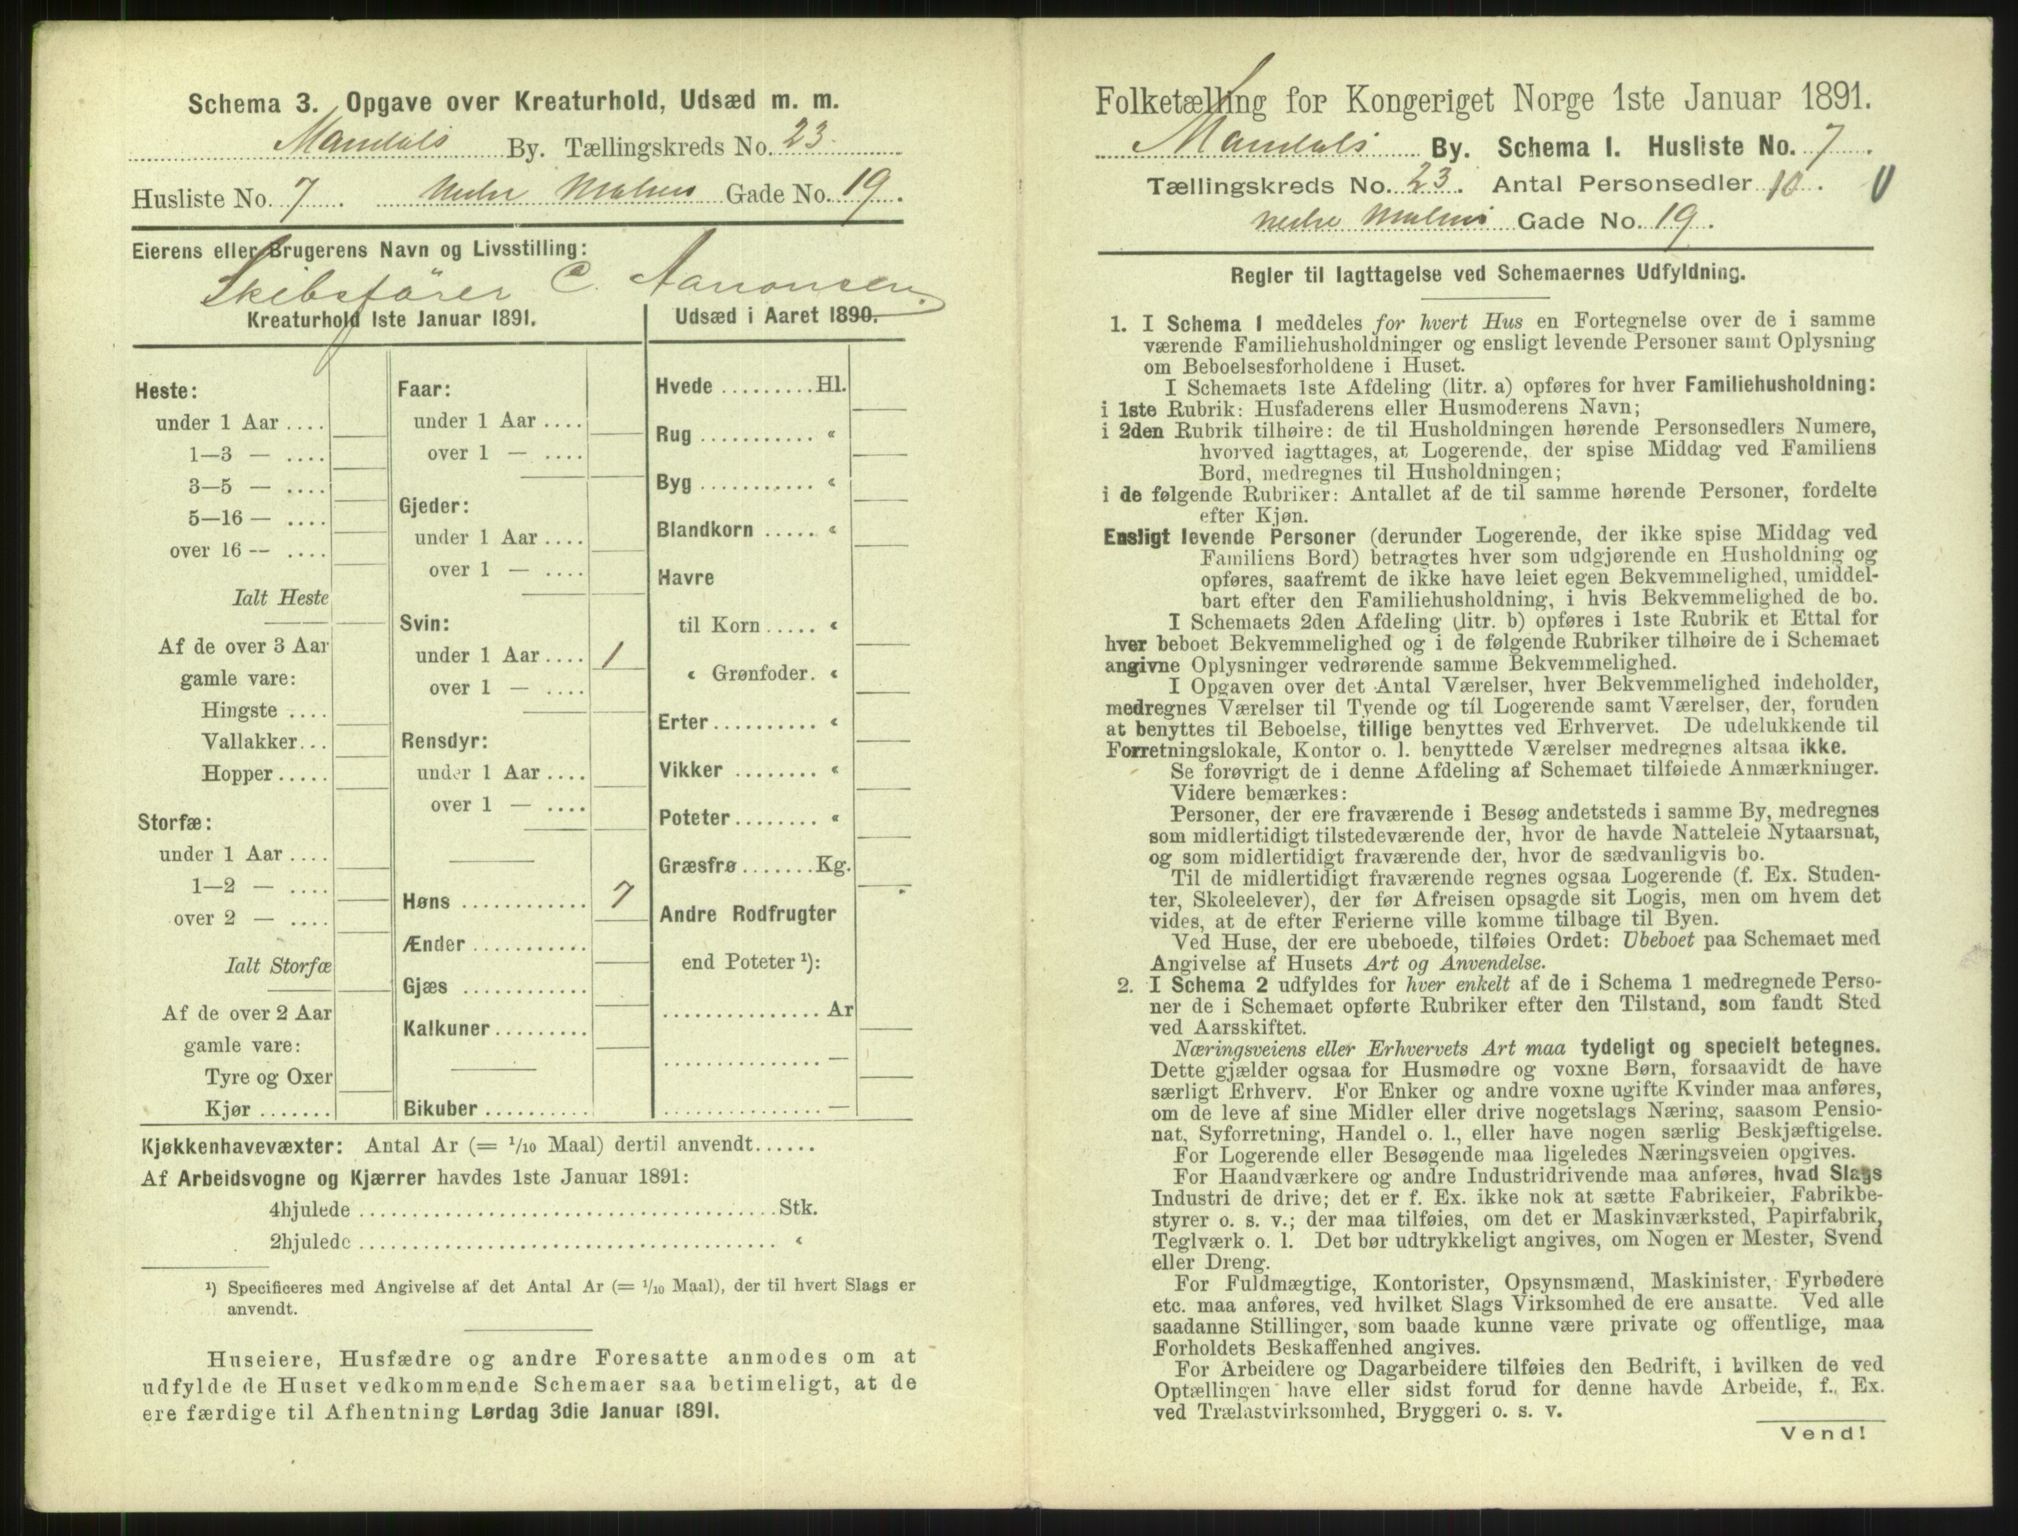 Schema 3. Opgave over Kreaturhold, Udsæd m. m.
Mandals By. Tællingskreds No. 23
Husliste No. 7. Nedre Malmø Gade No. 19.
Eierens eller Brugerens Navn og Livsstilling:
Skibsfører C. Aanonsen.
Kreaturhold 1ste Januar 1891.
Heste:
under 1 Aar ....
1—3 — ....
3—5 — ....
5—16 — ....
over 16 — ....
Ialt Heste
Af de over 3 Aar
gamle vare:
Hingste ....
Vallakker...
Hopper.....
Storfæ:
under 1 Aar ....
1—2 — ....
over 2 — ....
Ialt Storfæ
Af de over 2 Aar
gamle vare:
Tyre og Oxer
Kjør .......
Faar:
under 1 Aar ....
over 1 — ....
Gjeder:
under 1 Aar ....
over 1 — ....
Svin:
under 1 Aar .... 1
over 1 — ....
Rensdyr:
under 1 Aar ....
over 1 — ....
Høns ............ 7
Ænder ...........
Gjæs ............
Kalkuner.........
Bikuber ..........
Udsæd i Aaret 1890.
Hvede .........Hl.
Rug ........... «
Byg ........... «
Blandkorn ..... «
Havre
til Korn ..... «
« Grønfoder. «
Erter .......... «
Vikker ........ «
Poteter ........ «
Græsfrø .......Kg.
Andre Rodfrugter
end Poteter ¹):
............... Ar
............... —
............... —
Kjøkkenhavevæxter: Antal Ar (= 1/10 Maal) dertil anvendt......
Af Arbeidsvogne og Kjærrer havdes 1ste Januar 1891:
4hjulede ........................................Stk.
2hjulede ........................................ «
¹) Specificeres med Angivelse af det Antal Ar (= 1/10 Maal), der til hvert Slags er
anvendt.
Huseiere, Husfædre og andre Foresatte anmodes om at
udfylde de Huset vedkommende Schemaer saa betimeligt, at de
ere færdige til Afhentning Lørdag 3die Januar 1891.
Folketælling for Kongeriget Norge 1ste Januar 1891.
Mandals By. Schema 1. Husliste No. 7.
Tællingskreds No. 23. Antal Personsedler 10.
Nedre Malmø Gade No. 19.
Regler til Iagttagelse ved Schemaernes Udfyldning.
1. I Schema 1 meddeles for hvert Hus en Fortegnelse over de i samme
værende Familiehusholdninger og ensligt levende Personer samt Oplysning
om Beboelsesforholdene i Huset.
I Schemaets 1ste Afdeling (litr. a) opføres for hver Familiehusholdning:
i 1ste Rubrik: Husfaderens eller Husmoderens Navn;
i 2den Rubrik tilhøire: de til Husholdningen hørende Personsedlers Numere,
hvorved iagttages, at Logerende, der spise Middag ved Familiens
Bord, medregnes til Husholdningen;
i de følgende Rubriker: Antallet af de til samme hørende Personer, fordelte
efter Kjøn.
Ensligt levende Personer (derunder Logerende, der ikke spise Middag ved
Familiens Bord) betragtes hver som udgjørende en Husholdning og
opføres, saafremt de ikke have leiet egen Bekvemmelighed, umiddel-
bart efter den Familiehusholdning, i hvis Bekvemmelighed de bo.
I Schemaets 2den Afdeling (litr. b) opføres i 1ste Rubrik et Ettal for
hver beboet Bekvemmelighed og i de følgende Rubriker tilhøire de i Schemaet
angivne Oplysninger vedrørende samme Bekvemmelighed.
I Opgaven over det Antal Værelser, hver Bekvemmelighed indeholder,
medregnes Værelser til Tyende og til Logerende samt Værelser, der, foruden
at benyttes til Beboelse, tillige benyttes ved Erhvervet. De udelukkende til
Forretningslokale, Kontor o. l. benyttede Værelser medregnes altsaa ikke.
Se forøvrigt de i denne Afdeling af Schemaet tilføiede Anmærkninger.
Videre bemærkes:
Personer, der ere fraværende i Besøg andetsteds i samme By, medregnes
som midlertidigt tilstedeværende der, hvor de havde Natteleie Nytaarsnat,
og som midlertidigt fraværende der, hvor de sædvanligvis bo.
Til de midlertidigt fraværende regnes ogsaa Logerende (f. Ex. Studen-
ter, Skoleelever), der før Afreisen opsagde sit Logis, men om hvem det
vides, at de efter Ferierne ville komme tilbage til Byen.
Ved Huse, der ere ubeboede, tilføies Ordet: Ubeboet paa Schemaet med
Angivelse af Husets Art og Anvendelse.
2. I Schema 2 udfyldes for hver enkelt af de i Schema 1 medregnede Perso-
ner de i Schemaet opførte Rubriker efter den Tilstand, som fandt Sted
ved Aarsskiftet.
Næringsveiens eller Erhvervets Art maa tydeligt og specielt betegnes.
Dette gjælder ogsaa for Husmødre og voxne Børn, forsaavidt de have
særligt Erhverv. For Enker og andre voxne ugifte Kvinder maa anføres,
om de leve af sine Midler eller drive nogetslags Næring, saasom Pensio-
nat, Syforretning, Handel o. l., eller have nogen særlig Beskjæftigelse.
For Logerende eller Besøgende maa ligeledes Næringsveien opgives.
For Haandværkere og andre Industridrivende maa anføres, hvad Slags
Industri de drive; det er f. Ex. ikke nok at sætte Fabrikeier, Fabrikbe-
styrer o. s. v.; der maa tilføies, om det er Maskinværksted, Papirfabrik,
Teglværk o. l. Det bør udtrykkeligt angives, om Nogen er Mester, Svend
eller Dreng.
For Fuldmægtige, Kontorister, Opsynsmænd, Maskinister, Fyrbødere
etc. maa anføres, ved hvilket Slags Virksomhed de ere ansatte. Ved alle
saadanne Stillinger, som baade kunne være private og offentlige, maa
Forholdets Beskaffenhed angives.
For Arbeidere og Dagarbeidere tilføies den Bedrift, i hvilken de ved
Optællingen have eller sidst forud for denne havde Arbeide, f. Ex.
ved Trælastvirksomhed, Bryggeri o. s. v.
Vend!